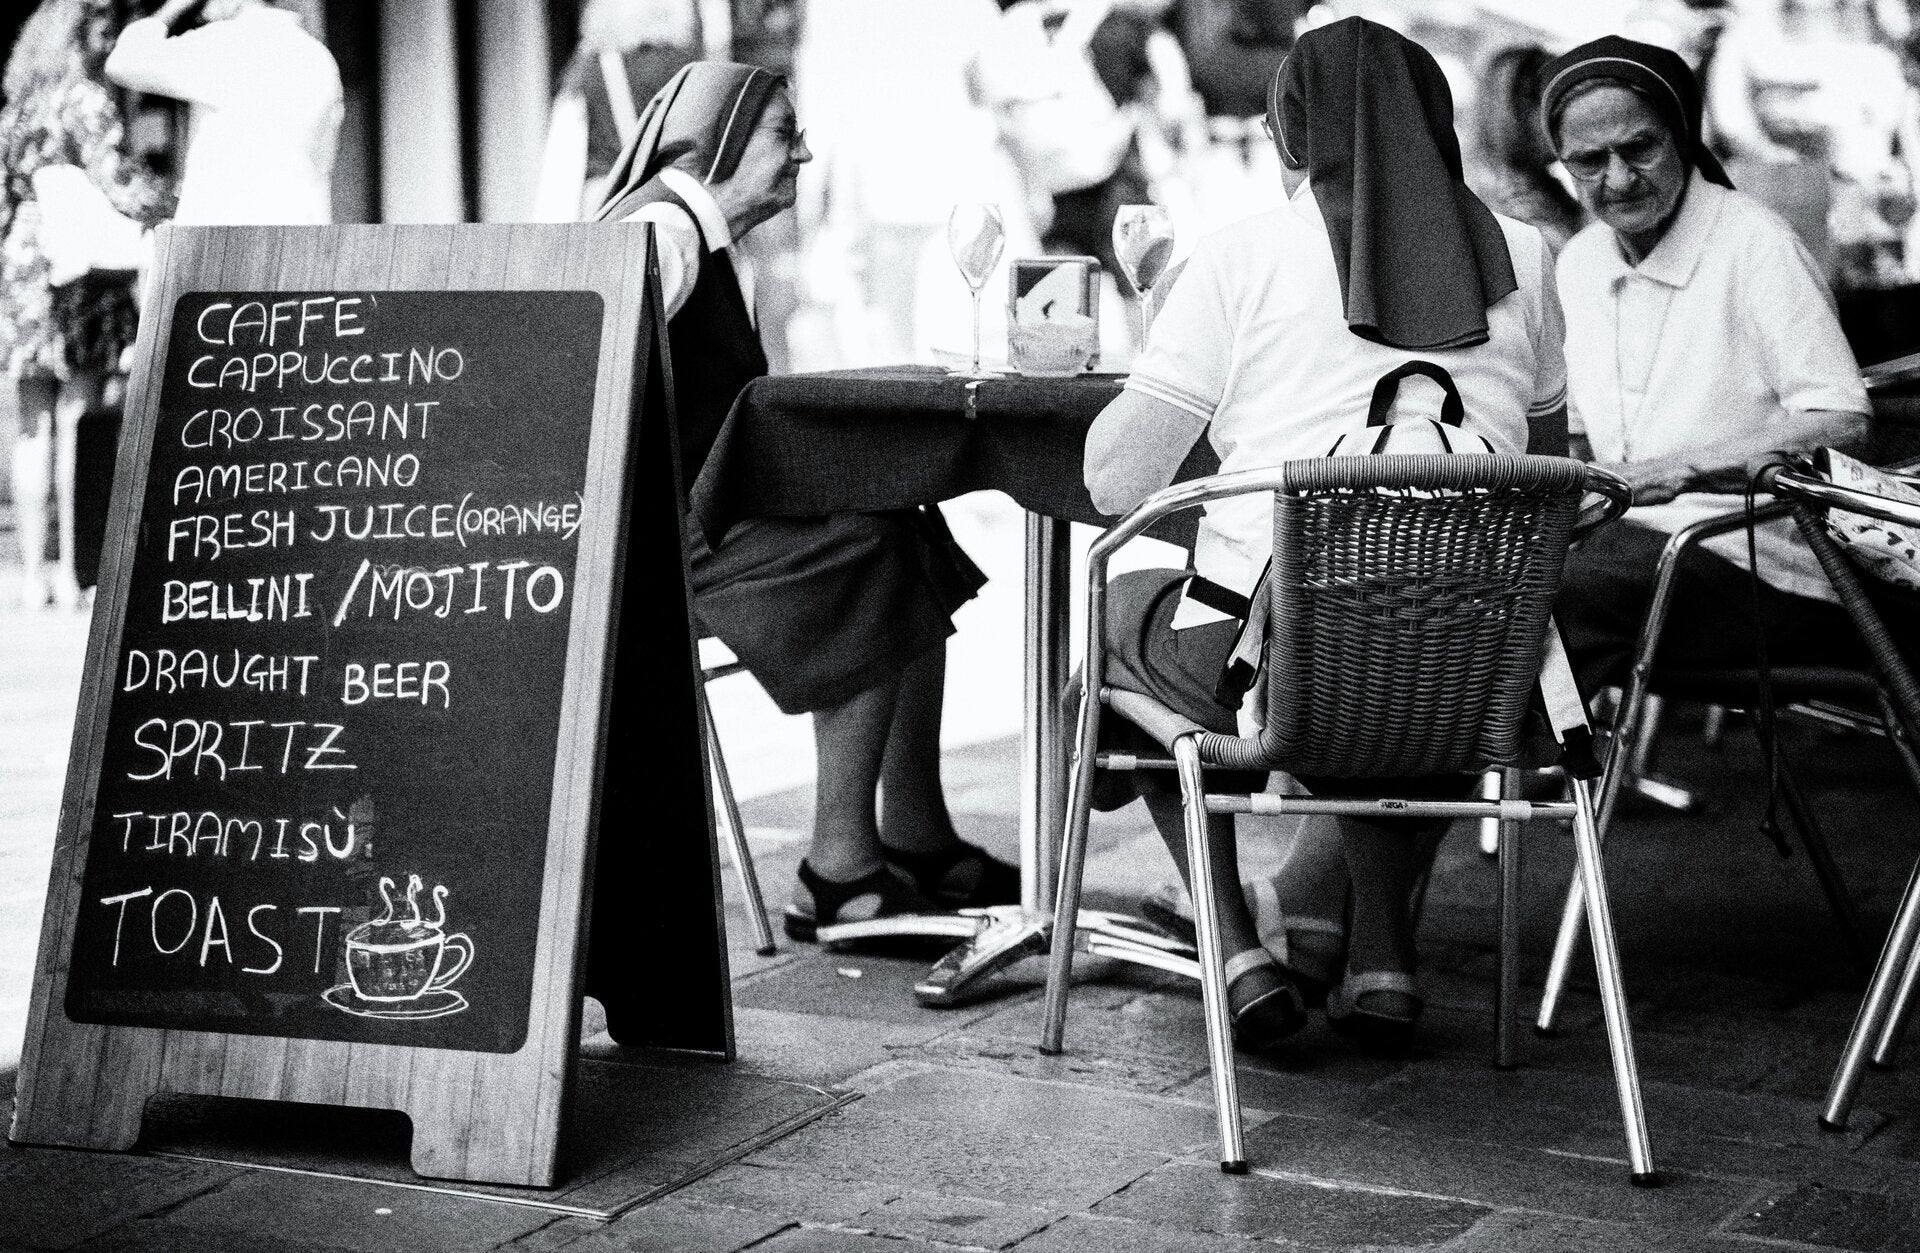 CAFFE'
CAPPUCCINO
CROISSANT
AMERICANO
FRESH JUICE (ORANGE)
BELLINI / MOJITO
DRAUGHT BEER
SPRITZ
TIRAMISÙ
TOAST
VEGA